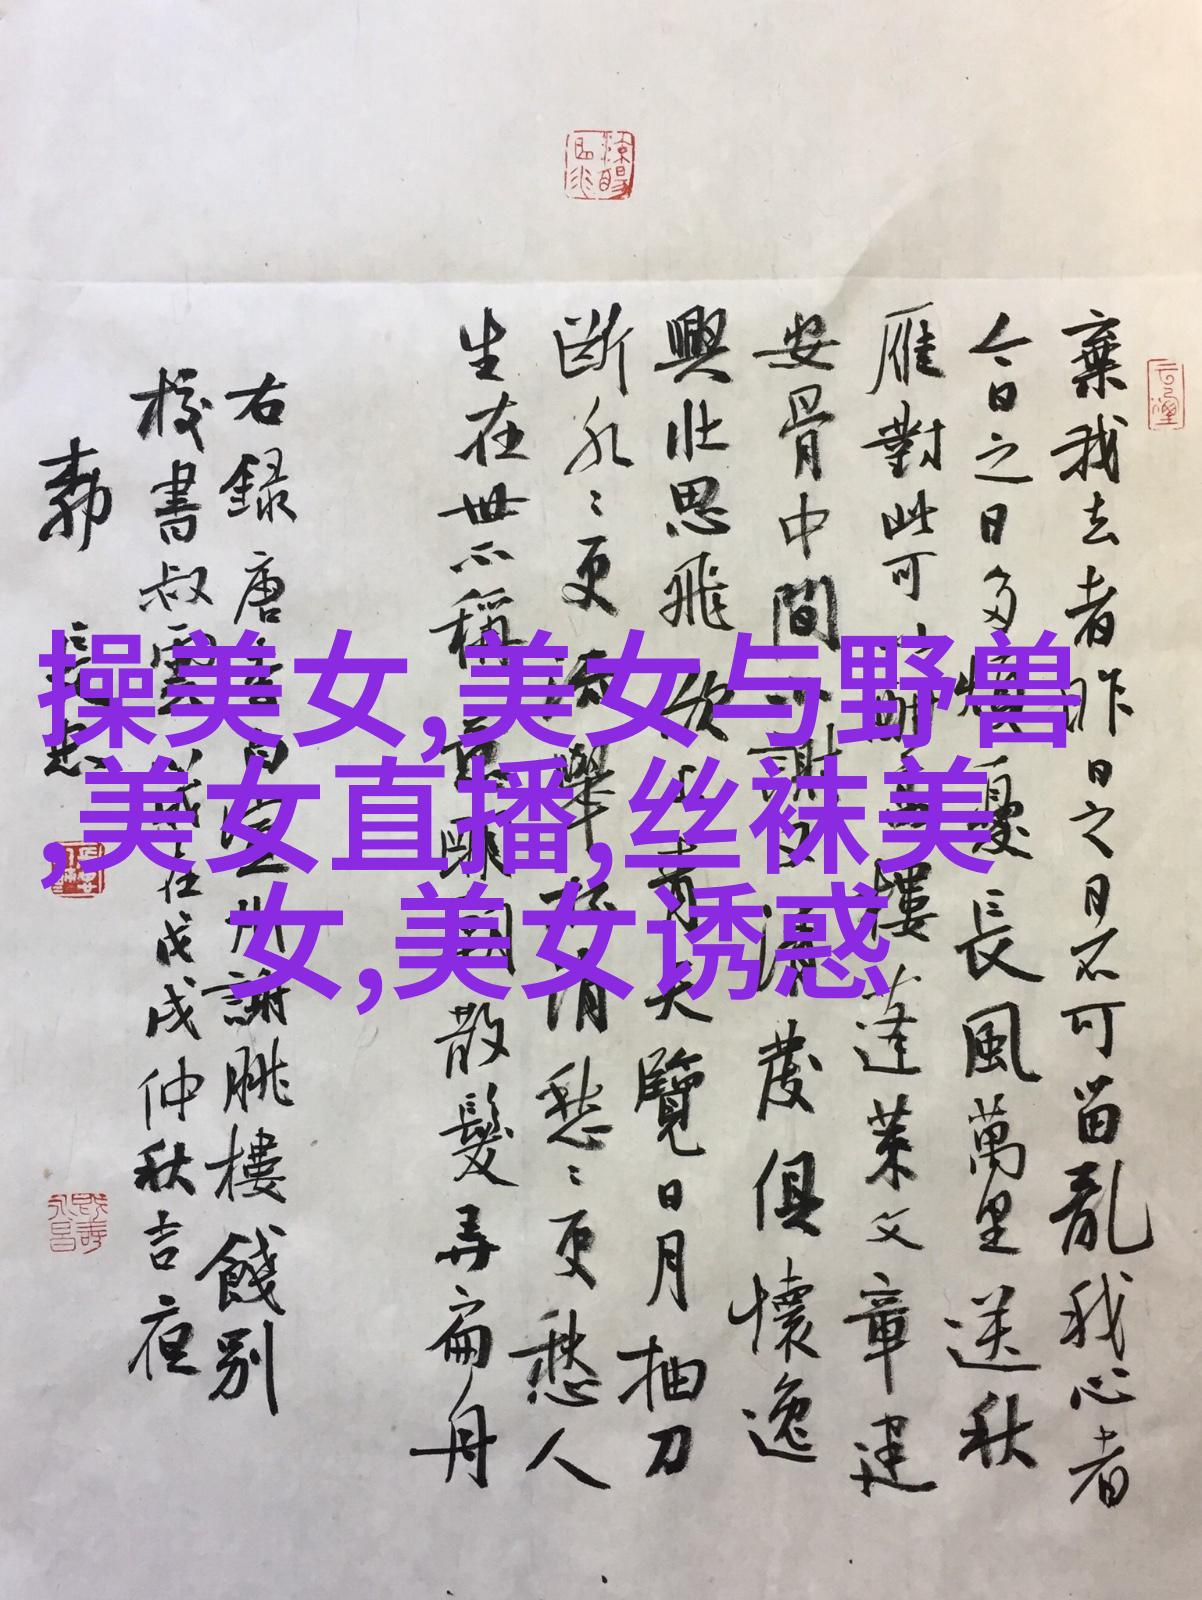 棄我去者昨日之日不可留亂我心者
今日之日多煩憂長風萬里送秋
雁對此可以酣高樓蓬萊文章建
安骨中間小謝又清發俱懷逸
興壯思飛欲上青天覽日月抽刀
斷水〻更流舉杯消愁〻更愁人
生在世不稱意明朝散髮弄扁舟
右録唐李白宣州謝朓樓餞别
校書叔雲歲在戊戌仲秋吉夜
操美女,美女与野兽
,美女直播,丝袜美
女,美女诱惑